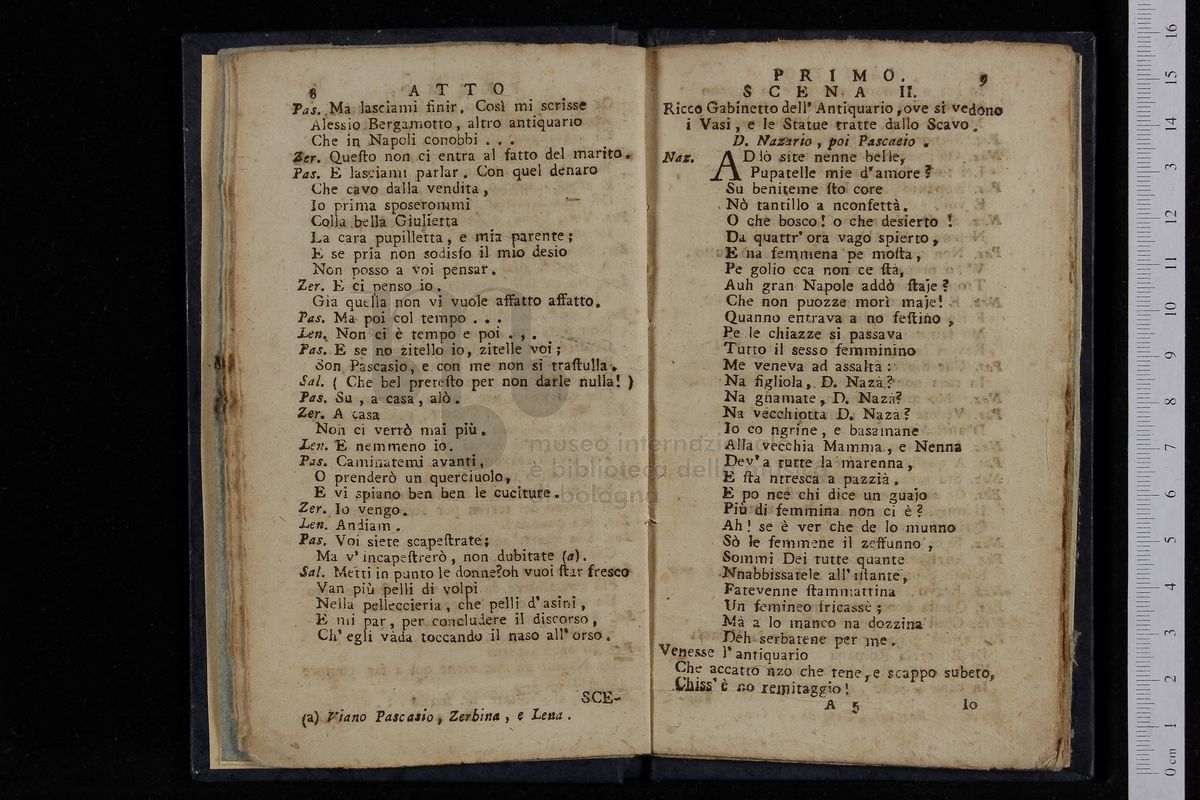 8 ATTO
Pas. Ma lasciami finir. Così mi scrisse
Alessio Bergamotto, altro antiquario
Che in Napoli conobbi . . .
Zer. Queſto non ci entra al fatto del marito.
Pas. E lasciami parlar. Con quel denaro
Che cavo dalla vendita,
Io prima sposerommi
Colla bella Giulietta
La cara pupilletta, e mia parente;
E se pria non sodisfo il mio desio
Non posso a voi pensar.
Zer. E ci penso io.
Gia quella non vi vuole affatto affatto.
Pas. Ma poi col tempo . . .
Len. Non ci è tempo e poi . , .
Pas. E se no zitello io, zitelle voi;
Son Pascasio, e con me non si traſtulla.
Sal. ( Che bel preteſto per non darle nulla! )
Pas. Su, a casa, alò.
Zer. A casa
Non ci verrò mai più.
Len. E nemmeno io.
Pas. Caminatemi avanti,
O prenderò un querciuolo,
E vi spiano ben ben le cuciture.
Zer. Io vengo.
Len. Andiam.
Pas. Voi siete scapeſtrate;
Ma v' incapeſtrerò, non dubitate (a).
Sal. Metti in punto le donne? oh vuoi ſtar fresco
Van più pelli di volpi
Nella pelleccieria, che pelli d'asini,
E mi par, per concludere il discorso,
Ch' egli vada toccando il naso all' orso.
SCE-
(a) Viano Pascasio, Zerbina, e Lena.
PRIMO. 9
SCENA II.
Ricco Gabinetto dell' Antiquario, ove si vedono
i Vasi, e le Statue tratte dallo Scavo.
D. Nazario, poi Pascasio.
Naz. ADiò site nenne belle,
Pupatelle mie d'amore?
Su beniteme ſto core
Nò tantillo a nconfettà.
O che bosco! o che desierto !
Da quattr' ora vago spierto,
E na femmena pe moſta,
Pe golio cca non ce ſta,
Auh gran Napole addò ſtaje?
Che non puozze morì maje!
Quanno entrava a no feſtino ,
Pe le chiazze si passava
Tutto il sesso femminino
Me veneva ad assalta:
Na figliola, D. Nazà?
Na gnamate, D. Nazà?
Na vecchiotta D. Nazà?
Io co ngrine, e basamane
Alla vecchia Mamma, e Nenna
Dev'a tutte la marenna,
E ſta ntresca a pazzià.
E po nce chi dice un guajo
Più di femmina non ci è?
Ah! se è ver che de lo munno
Sò le femmene il zeffunno,
Sommi Dei tutte quante
Nnabbissatele all' iſtante,
Farevenne ſtammattina
Un femineo fricassè;
Mà a lo manco na dozzina
Deh serbatene per me.
Venesse l'antiquario
Che accatto nzo che tene, e scappo subeto,
Chiss' è no remitaggio!
A 5 Io
museo internazionale
e biblioteca della musica
di bologna
0 cm 1 2 3 4 5 6 7 8 9 10 11 12 13 14 15 16